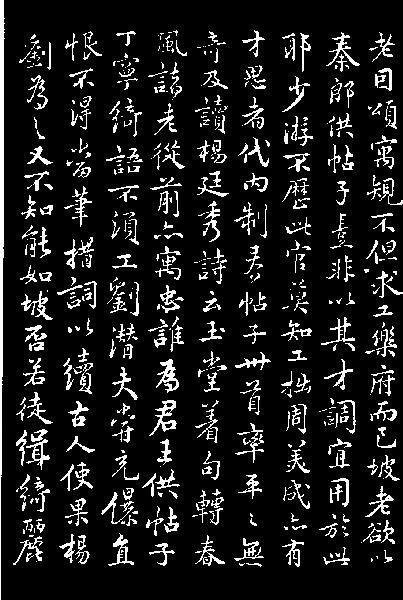 老因頌寓規不但求工樂府而已坡老欲以
秦郎供帖子意非以其才調宜用於此
耶少游不歷此官莫知工拙周美成亦有
才思者代內制春帖子卅首率平〻無
奇及讀楊廷秀詩云玉堂著句轉春
風諸老從前亦寓忠誰為君王供帖子
丁寧綺語不須工劉潛夫嘗充儤直
恨不得當筆措詞以續古人使果楊
劉為之又不知能如坡否若徒緝綺麗